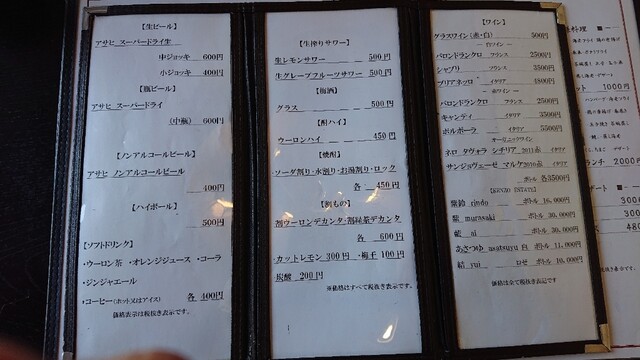 【生ビール】
アサヒ スーパードライ生
中ジョッキ 600円
小ジョッキ 400円
【瓶ビール】
アサヒ スーパードライ
(中瓶) 600円
【ノンアルコールビール】
アサヒ ノンアルコールビール
400円
【ハイボール】
500円
【ソフトドリンク】
・ウーロン茶 ・オレンジジュース ・コーラ
・ジンジャエール
・コーヒー(ホット又はアイス) 各 400円
価格表示は税抜き表示です。
【生搾りサワー】
生レモンサワー 500円
生グレープフルーツサワー 500円
【梅酒】
グラス 500円
【酎ハイ】
ウーロンハイ 450円
【焼酎】
ソーダ割り・水割り・お湯割り・ロック
各 450円
【割もの】
割ウーロンデカンタ・割緑茶デカンタ
各 600円
・カットレモン 300円 ・梅干 100円
炭酸 200円
※価格はすべて税抜き表示です。
【ワイン】
グラスワイン(赤・白) 500円
― 白ワイン ―
バロンドランクロ フランス 2500円
シャブリ フランス 3500円
ブリアネッロ イタリア 4800円
― 赤ワイン ―
バロンドランクロ フランス 2500円
キャンティ イタリア 3500円
ボルポーラ イタリア 5500円
オーガニックワイン
ネロ ダヴォラ シチリア 2011赤 イタリア
サンジョヴェーゼ マルケ2010赤 イタリア
ボトル 各3500円
【KENZO ESTATE】
紫鈴 rindo ボトル 16,000円
紫 murasaki ボトル 30,000円
藍 ai ボトル 30,000円
あさつゆ asatsuyu 白 ボトル 11,000円
結 yui ロゼ ボトル 10,000円
価格は全て税抜き表記です
料理
1000円
デザート
ランチ 2000円